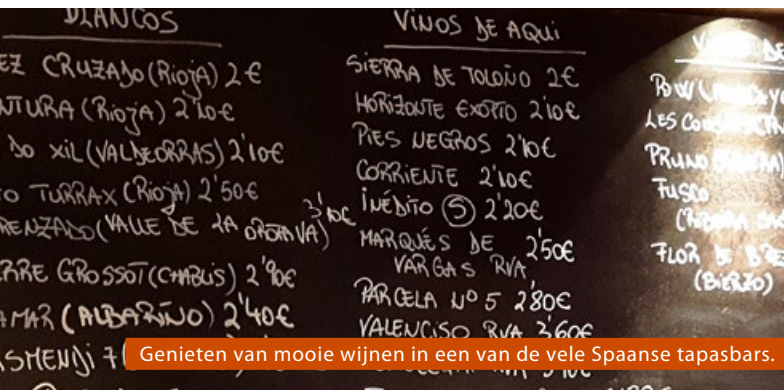 BLANCOS
EZ CRUZADO (RIOJA) 2€
NTURA (RIOJA) 2'10€
DO XIL (VALDEORRAS) 2'10€
TO TURRAX (RIOJA) 2'50€
RENZADO (VALLE DE LA OROTAVA) 3'10€
ERRE GROSSOT (CHABLIS) 2'90€
AMAR (ALBARIÑO) 2'40€
VINOS DE AQUI
SIERRA DE TOLOÑO 2€
HORIZONTE EXOPTO 2'10€
PIES NEGROS 2'10€
CORRIENTE 2'10€
INÉDITO (S) 2'20€
MARQUÉS DE 2'50€
VARGAS RVA
PARCELA Nº 5 2'80€
VALENCISO RVA 3'60€
PRUNO
FUSCO
FLOR DE
(BIERZO)
Genieten van mooie wijnen in een van de vele Spaanse tapasbars.